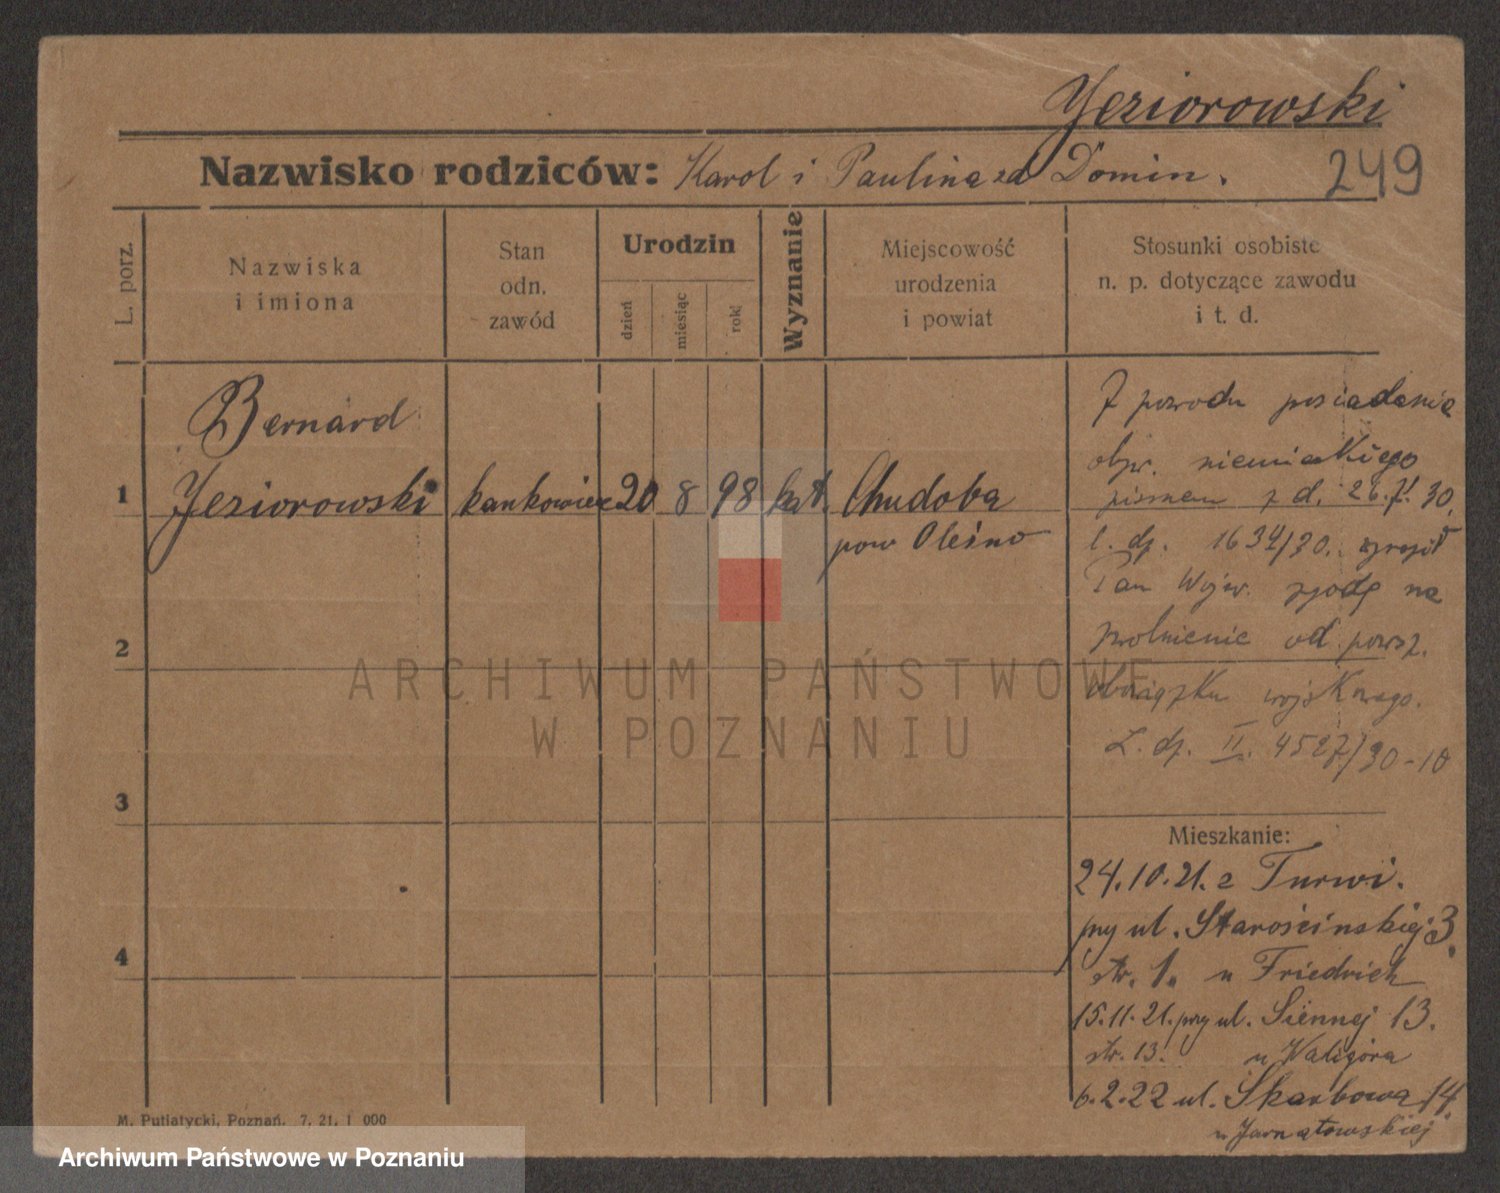 Jeziorowski
Nazwisko rodziców: Karol i Paulina zd Domin.
249
L. porz.
Nazwiska
i imiona
Stan
odn.
zawód
Urodzin
dzień
miesiąc
rok
Wyznanie
Miejscowość
urodzenia
i powiat
Stosunki osobiste
n. p. dotyczące zawodu
i t. d.
Bernard
1 Jeziorowski bankowiec 20 8 98 kat. Chudoba
pow Oleśno
Z powodu posiadania
obyw. niemieckiego
pismem z d. 26.7.30.
l. dz. 1634/30. wyraził
Pan Wojew. zgodę na
zwolnienie od powsz.
obowiązku wojskowego.
L. dz. II. 4527/30-10
2
3
4
Mieszkanie:
24.10.21. z Turwi.
przy ul. Starościńskiej 3.
str. 1. u Friedrich
15.11.21. przy ul. Siennej 13.
str. 13. u Kaligóra
6.2.22 ul. Skarbowa 14.
u Jarnatowskiej
M. Putiatycki, Poznań. 7. 21. 1 000
ARCHIWUM PAŃSTWOWE
W POZNANIU
Archiwum Państwowe w Poznaniu